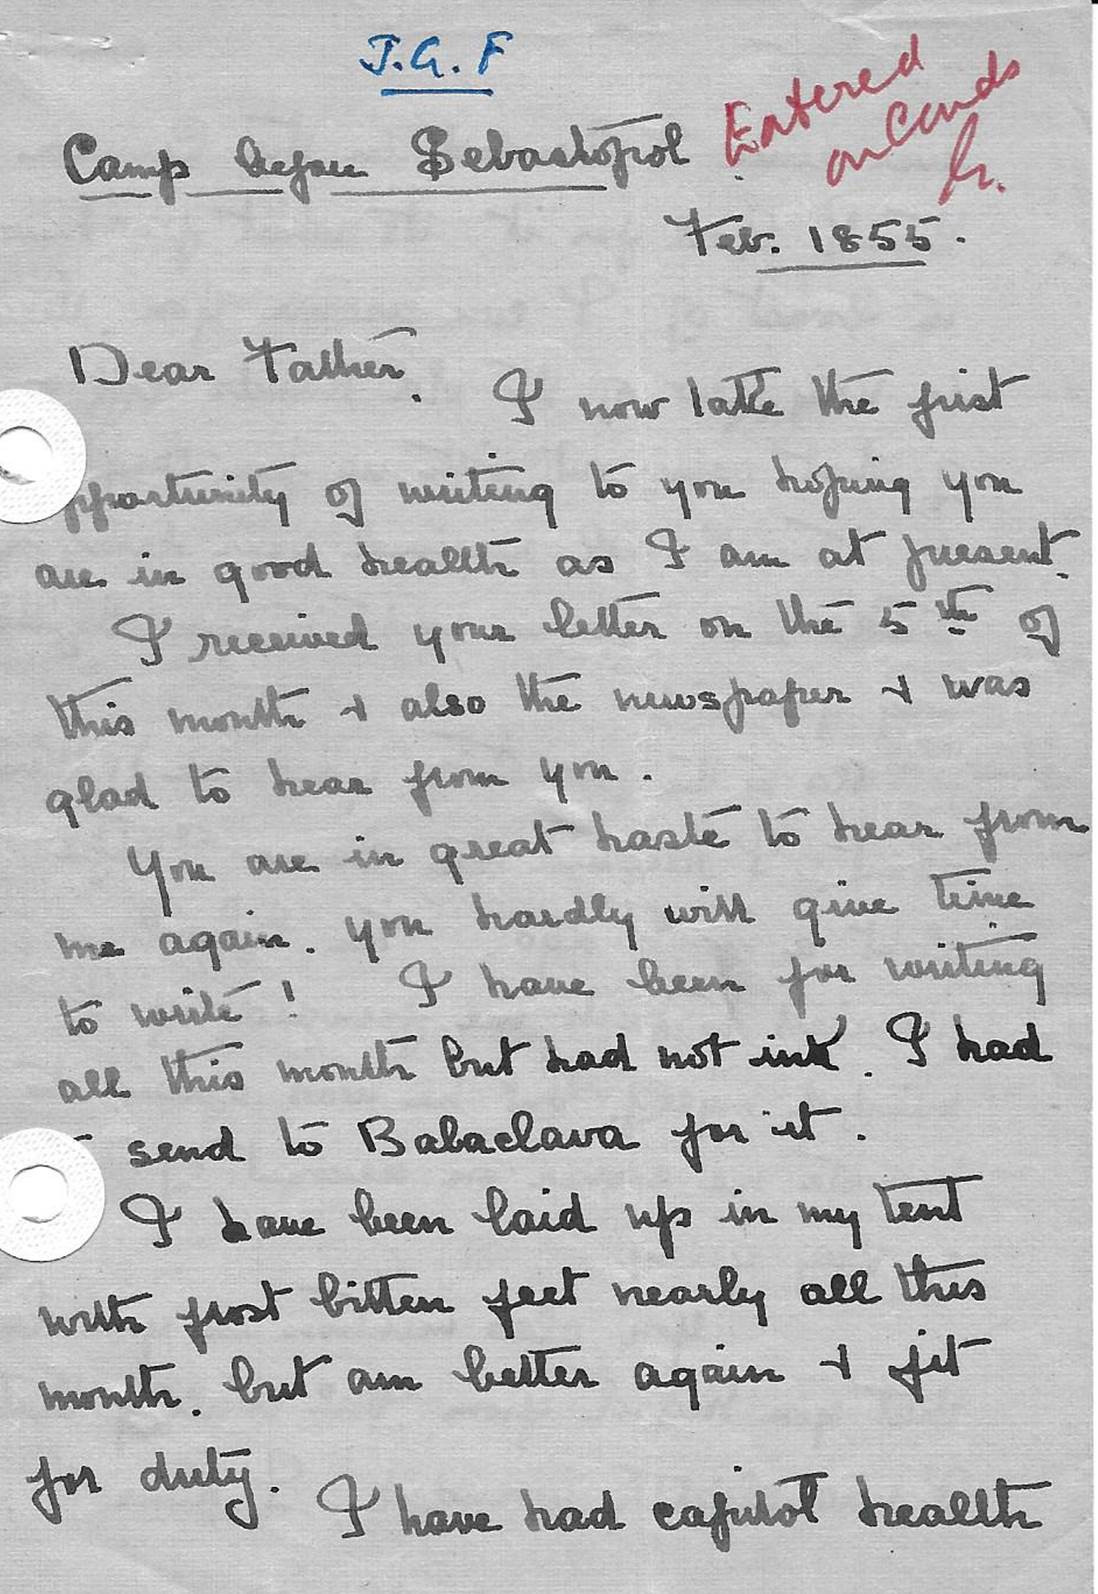 J.G.F
Entered
on Cards
Camp before Sebastopol
Feb. 1855.
Dear Father.
I now take the first
opportunity of writing to you hoping you
are in good health as I am at present.
I received your letter on the 5th of
this month & also the newspaper & was
glad to hear from you.
You are in great haste to hear from
me again. you hardly will give time
to write! I have been for writing
all this month but had not ink. I had
send to Balaclava for it.
I have been laid up in my tent
with frost bitten feet nearly all this
month. but am better again & fit
for duty.
I have had capitol health